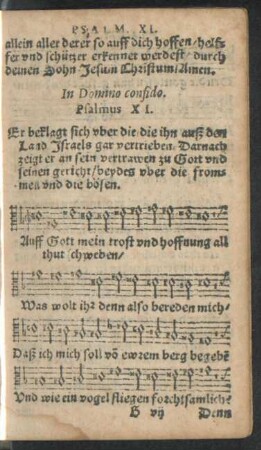 PSALM. XI.
allein aller derer so auff dich hoffen / helf-
fer vnd schützer erkennet werdest / durch
deinen Sohn Jesum Christum / Amen.
In Domino confido.
Psalmus XI.
Er beklagt sich vber die / die ihn auß dem
Land Israels gar vertrieben. Darnach
zeigt er an sein vertrawen zu Gott vnd
seinen gericht / beydes vber die from-
men vnd die bösen.
Auff Gott mein trost vnd hoffnung all
thut schweben /
Was wolt ihr denn also bereden mich /
Daß ich mich soll võ ewrem berg begebẽ
Vnd wie ein vogel fliegen forchtsamlich?
B vij Denn